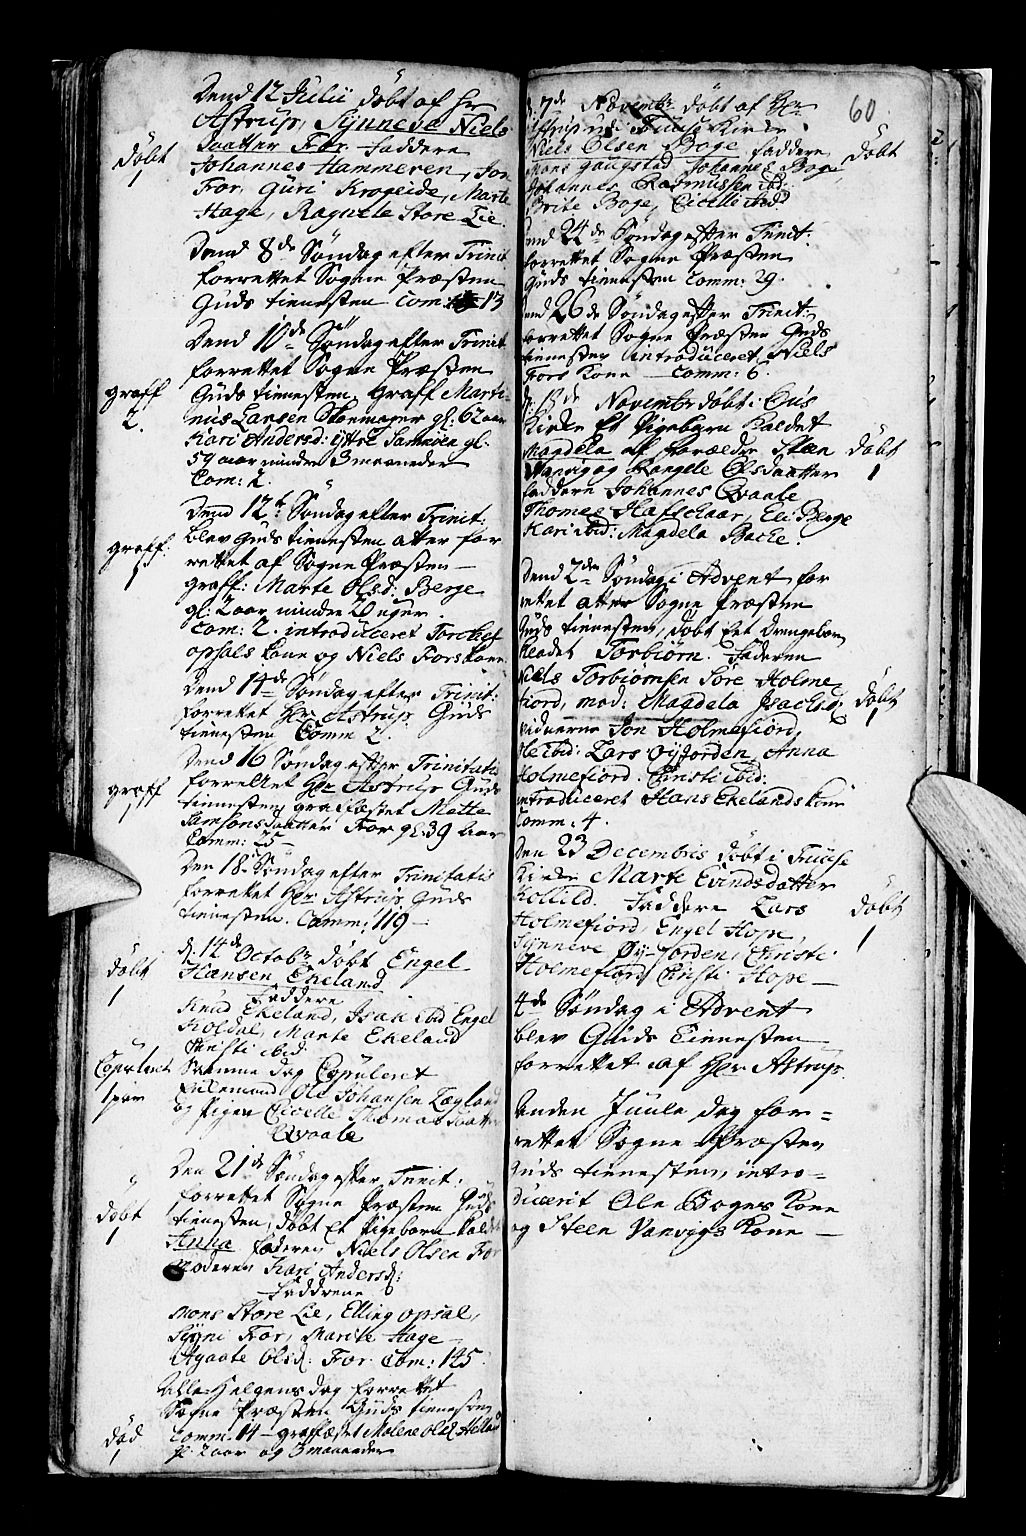 Dend 12 Julii döbt af Hr
Astrup, Synneve Niels
daatter For. Faddere
döbt
1
Johannes Hammeren, Jon
For, Guri Krogeide, Marte
Hage, Ragnele Store Lie.
Dend 8de Söndag efter Trinit
forrettet Sogne Præsten
Guds tienesten Com: 13
Dend 10de Söndag efter Trinit
forrettet Sogne Præsten
graff
2.
Guds tienesten. Graff Marti-
nus Larsen gl: 62 aar
Kari Andersd: Samnöen gl:
59 aar mindre 3 maaneder
Com: 2.
Dend 12te Söndag efter Trinit:
blev Guds tienesten atter for
graff:
1
rettet af Sogne Præsten —
graff: Marte Olsd: Berge
gl: 2 aar mindre 20 uger
Com: 2. introduceret Torchel
opsals Kone og Niels Fors Kone
Dend 14de Söndag efter Trinit:
forrettet Hr Astrup Guds
tienesten Comm 2.
Dend 16 Söndag efter Trinitatis
forrettet Hr Astrup Guds
graff
1
tienesten graffæstet Mette
Samsonsdaatter For gl: 39 aar
Comm: 25 —
Den 18de Söndag efter Trinitatis
forrettet Hr Astrup Guds
tienesten. Comm: 119 —
d. 14de Octobr döbt Engel
döbt
1
Hansen Ekeland
Faddere
Knud Ekeland, Isak ibid Engel
Koldal, Marte Ekeland
Christi ibid
Copuleret
1 par
Samme dag Copuleret
Ole Johansen Lægland
og Pigen Cicelle Thomasdaatter
Qvaale
Den 21de Söndag efter Trinit:
forrettet Sogne Præsten Guds
döbt
1
tienesten, döbt et Pigebarn kaldet
Anna faderen Niels Olsen For
moderen Kari Andersd:
Faddrene
Mons Store Lie, Elling opsal,
Sÿni For, Marite Hage
Agaate Olsd: For Com: 145
Alle Helgens dag forrettet
Sogne Præsten Guds tienesten
död
1
Comm: 14 — graffæstet Malene Olsd Helland
gl. 2 aar og 3 maaneder
60
d. 7de Novembr döbt af Hr
Astrup udi Fuuse Kirke
Niels Olsen Boge, faddere
döbt
Mons gaugstad Johannes Boge
Johannes Rasmussen ibd:
Brite Boge, Cicelle ibd
Dend 24de Söndag efter Trinit:
forrettet Sogne Præsten
Guds tienesten Comm: 29.
Dend 26de Söndag efter Trinit:
forrettet Sogne Præsten Guds
tienesten introduceret Niels
Fors Kone — Comm: 6.
d. 13de Novembr döbt i Ous
Kirke Et Pigebarn kaldet
Magdela af Forældre Steen
döbt
1
Vanvig og Rangele Olsdaatter
faddere Johannes Qvaale
Thomes Hafschaar, Eli Berge
Kari ibid: Magdela Backe.
Dend 2den Söndag i Advent for
rettet atter Sogne Præsten
Guds tienesten, döbt Eet drengebarn
kaldet Torbiörn. Faderen
Niels Torbiornsen Söre Holme
döbt
1
fiord, mod: Magdela Isachsd:
vidnerne Jon Holmefiord,
Ole ibid: Lars Öyjorden, Anna
Holmefiord. Christi ibid:
introduceret Hans Ekelands Kone
Comm: 4.
Den 23 Decembris döbt i Fuuse
Kirke Marte Eivindsdatter
döbt
1
Kollild. Faddere Lars
Holmefiord, Engel Hope,
Synneve Öy-Jorden, Christi
Holmefiord Christi Hope —
4de Söndag i Advent
blev Guds Tienesten
forrettet af Hr Astrup.
Anden Juule dag for-
rettet Sogne Præsten
Guds tienesten, intro-
ducerit Ole Boges Kone
og Steen Vanvigs Kone —